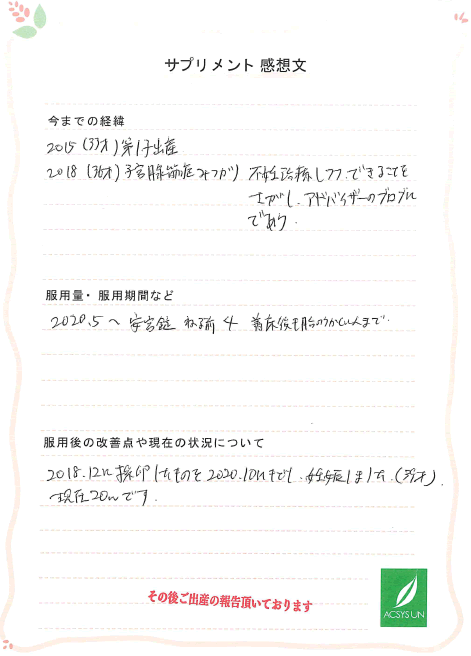 サプリメント 感想文
今までの経緯
2015 (33才) 第1子出産
2018 (36才) 子宮腺筋症みつかり 不妊治療しつつ、できることを
さがし、アドバイザーのブログに
であう.
服用量・服用期間など
2020.5 〜 安宮錠 ねる前 4 着床後も胎のうかくにんまで.
服用後の改善点や現在の状況について
2018.12に採卵したものを2020.10にもどし、妊娠しました.(38才).
現在20wです.
その後ご出産の報告頂いております
ACSYS UN